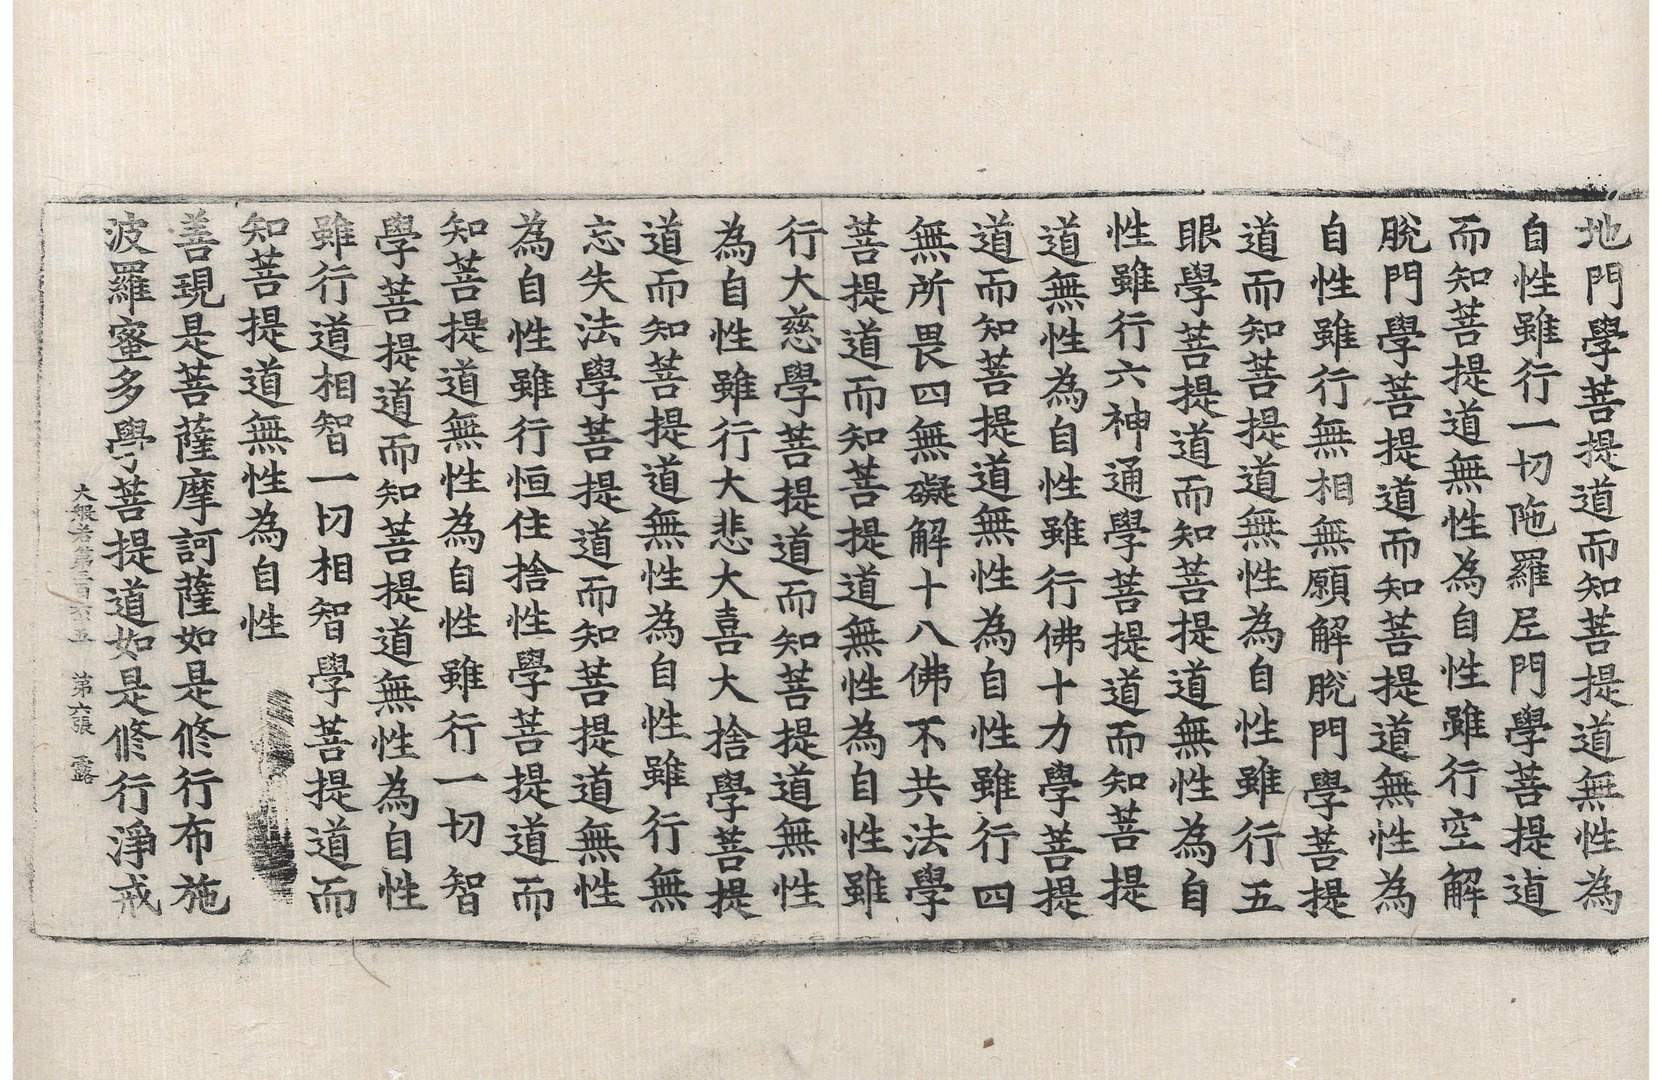 地門學菩提道而知菩提道無性為
自性雖行一切陁羅尼門學菩提道
而知菩提道無性為自性雖行空解
脫門學菩提道而知菩提道無性為
自性雖行無相無願解脫門學菩提
道而知菩提道無性為自性雖行五
眼學菩提道而知菩提道無性為自
性雖行六神通學菩提道而知菩提
道無性為自性雖行佛十力學菩提
道而知菩提道無性為自性雖行四
無所畏四無礙解十八佛不共法學
菩提道而知菩提道無性為自性雖
行大慈學菩提道而知菩提道無性
為自性雖行大悲大喜大捨學菩提
道而知菩提道無性為自性雖行無
忘失法學菩提道而知菩提道無性
為自性雖行恒住捨性學菩提道而
知菩提道無性為自性雖行一切智
學菩提道而知菩提道無性為自性
雖行道相智一切相智學菩提道而
知菩提道無性為自性
善現是菩薩摩訶薩如是修行布施
波羅蜜多學菩提道如是修行淨戒
大般若第三百六五 第六張 露